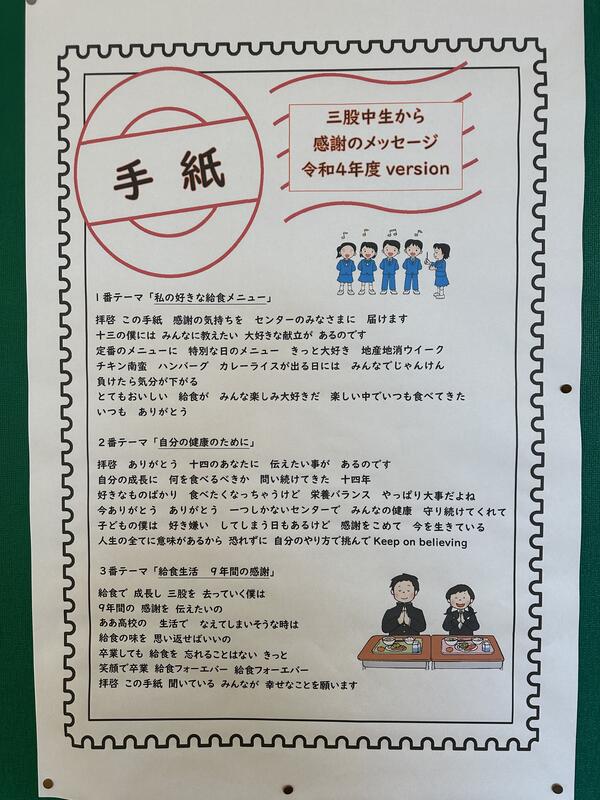 手紙
三股中生から
感謝のメッセージ
令和4年度 version
1番テーマ「私の好きな給食メニュー」
拝啓 この手紙 感謝の気持ちを センターのみなさまに 届けます
十三の僕には みんなに教えたい 大好きな献立が あるのです
定番のメニューに 特別な日のメニュー きっと大好き 地産地消ウイーク
チキン南蛮 ハンバーグ カレーライスが出る日には みんなでじゃんけん
負けたら気分が下がる
とてもおいしい 給食が みんな楽しみ大好きだ 楽しい中でいつも食べてきた
いつも ありがとう
2番テーマ「自分の健康のために」
拝啓 ありがとう 十四のあなたに 伝えたい事が あるのです
自分の成長に 何を食べるべきか 問い続けてきた 十四年
好きなものばかり 食べたくなっちゃうけど 栄養バランス やっぱり大事だよね
今ありがとう ありがとう 一つしかないセンターで みんなの健康 守り続けてくれて
子どもの僕は 好き嫌い してしまう日もあるけど 感謝をこめて 今を生きている
人生の全てに意味があるから 恐れずに 自分のやり方で挑んで Keep on believing
3番テーマ「給食生活 9年間の感謝」
給食で 成長し 三股を 去っていく僕は
9年間の 感謝を 伝えたいの
ああ高校の 生活で なえてしまいそうな時は
給食の味を 思い返せばいいの
卒業しても 給食を 忘れることはない きっと
笑顔で卒業 給食フォーエバー 給食フォーエバー
拝啓 この手紙 聞いている みんなが 幸せなことを願います